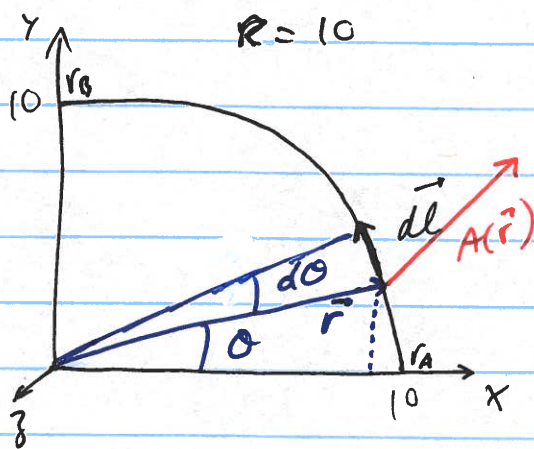 Y
R = 10
r_B
10
dl⃗
A(r⃗)
dθ
r⃗
θ
r_A
10
X
z